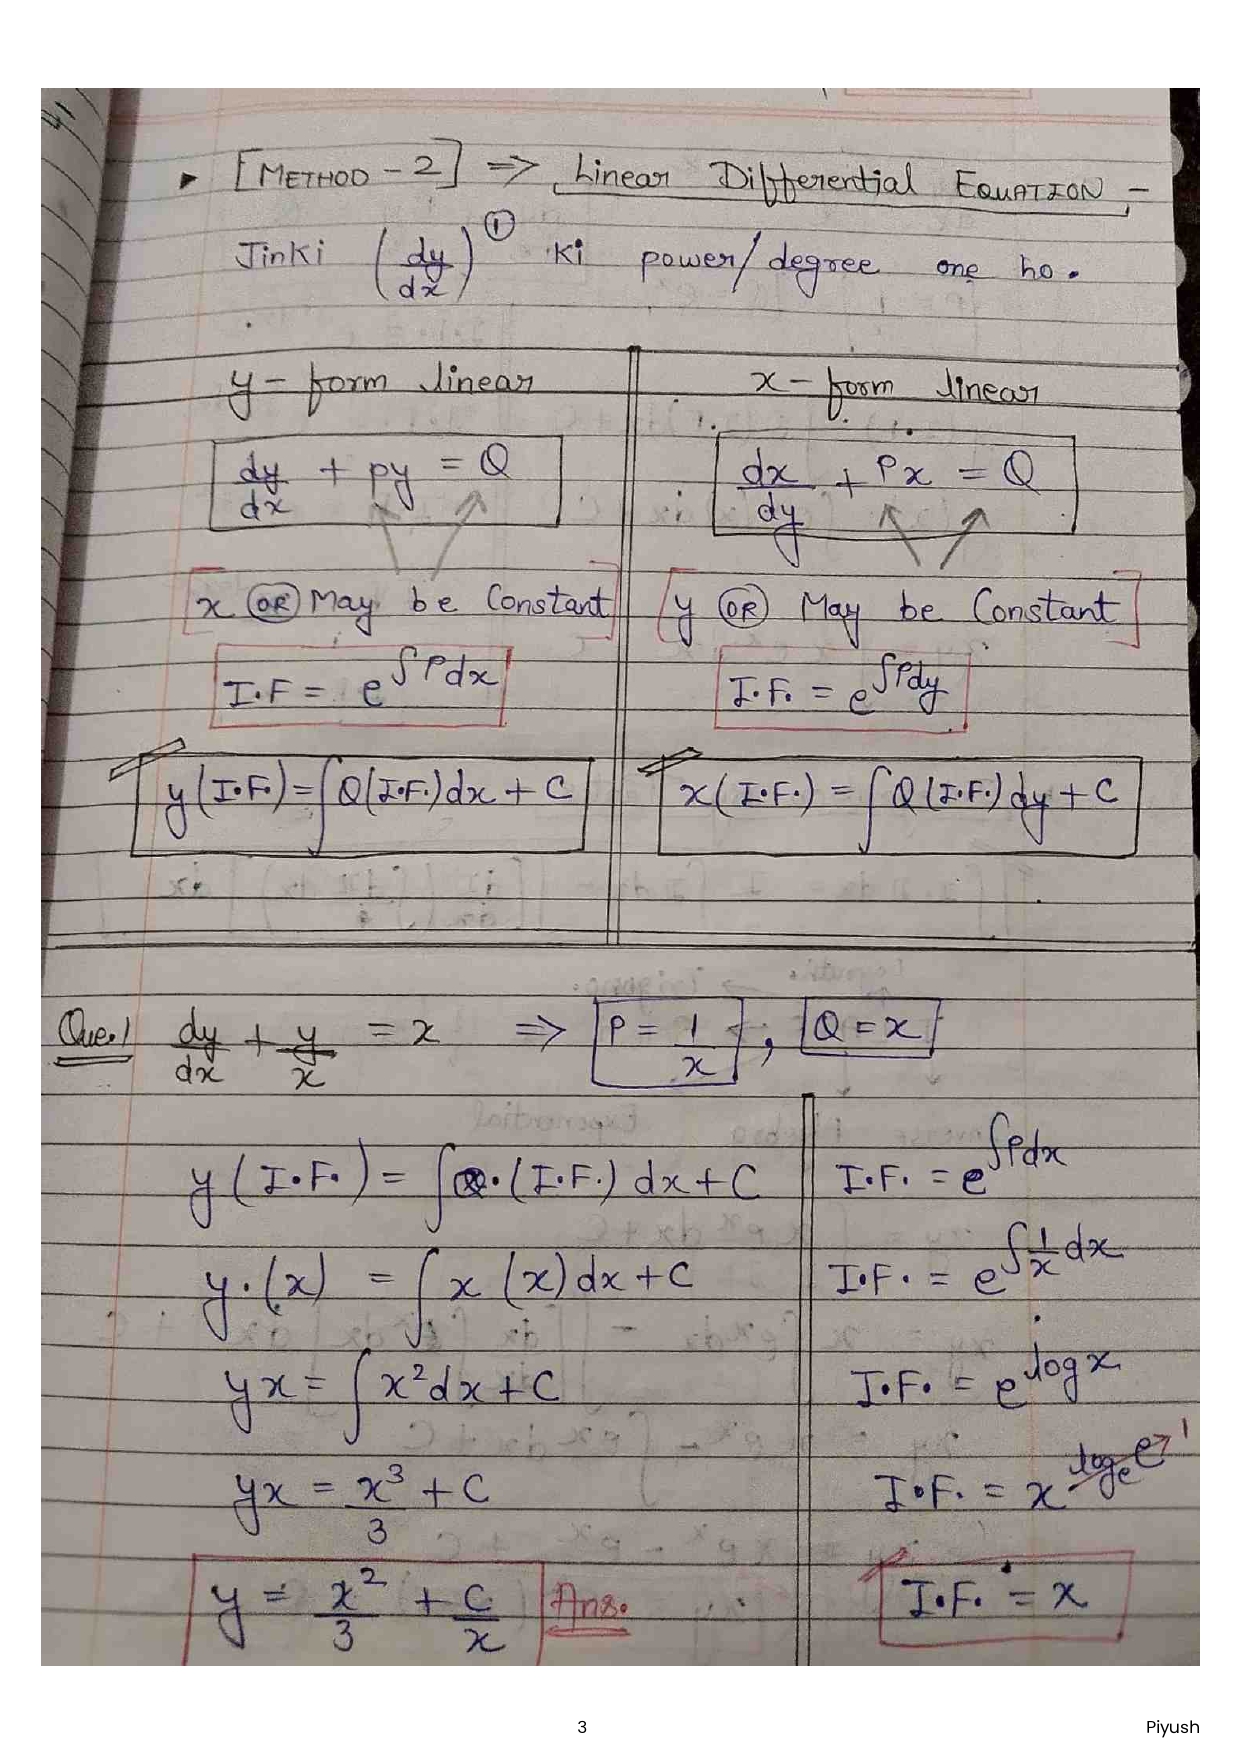 ▸ [METHOD - 2] => Linear Differential EQUATION, -
Jinki (dy/dx)^① ki power/degree one ho.
y - form linear
dy/dx + py = Q
x OR May be Constant
I.F = e^∫Pdx
y(I.F.) = ∫Q(I.F.)dx + C
x - form linear
dx/dy + Px = Q
y OR May be Constant
I.F. = e^∫Pdy
x(I.F.) = ∫Q(I.F.)dy + C
Que.1 dy/dx + y/x = x => P = 1/x , Q = x
y(I.F.) = ∫Q.(I.F.) dx + C
y.(x) = ∫x (x) dx + C
yx = ∫x²dx + C
yx = x³/3 + C
y = x²/3 + C/x Ans.
I.F. = e^∫Pdx
I.F. = e^∫1/x dx
I.F. = e^log x
I.F. = x^logₑe →1
I.F. = x
3
Piyush